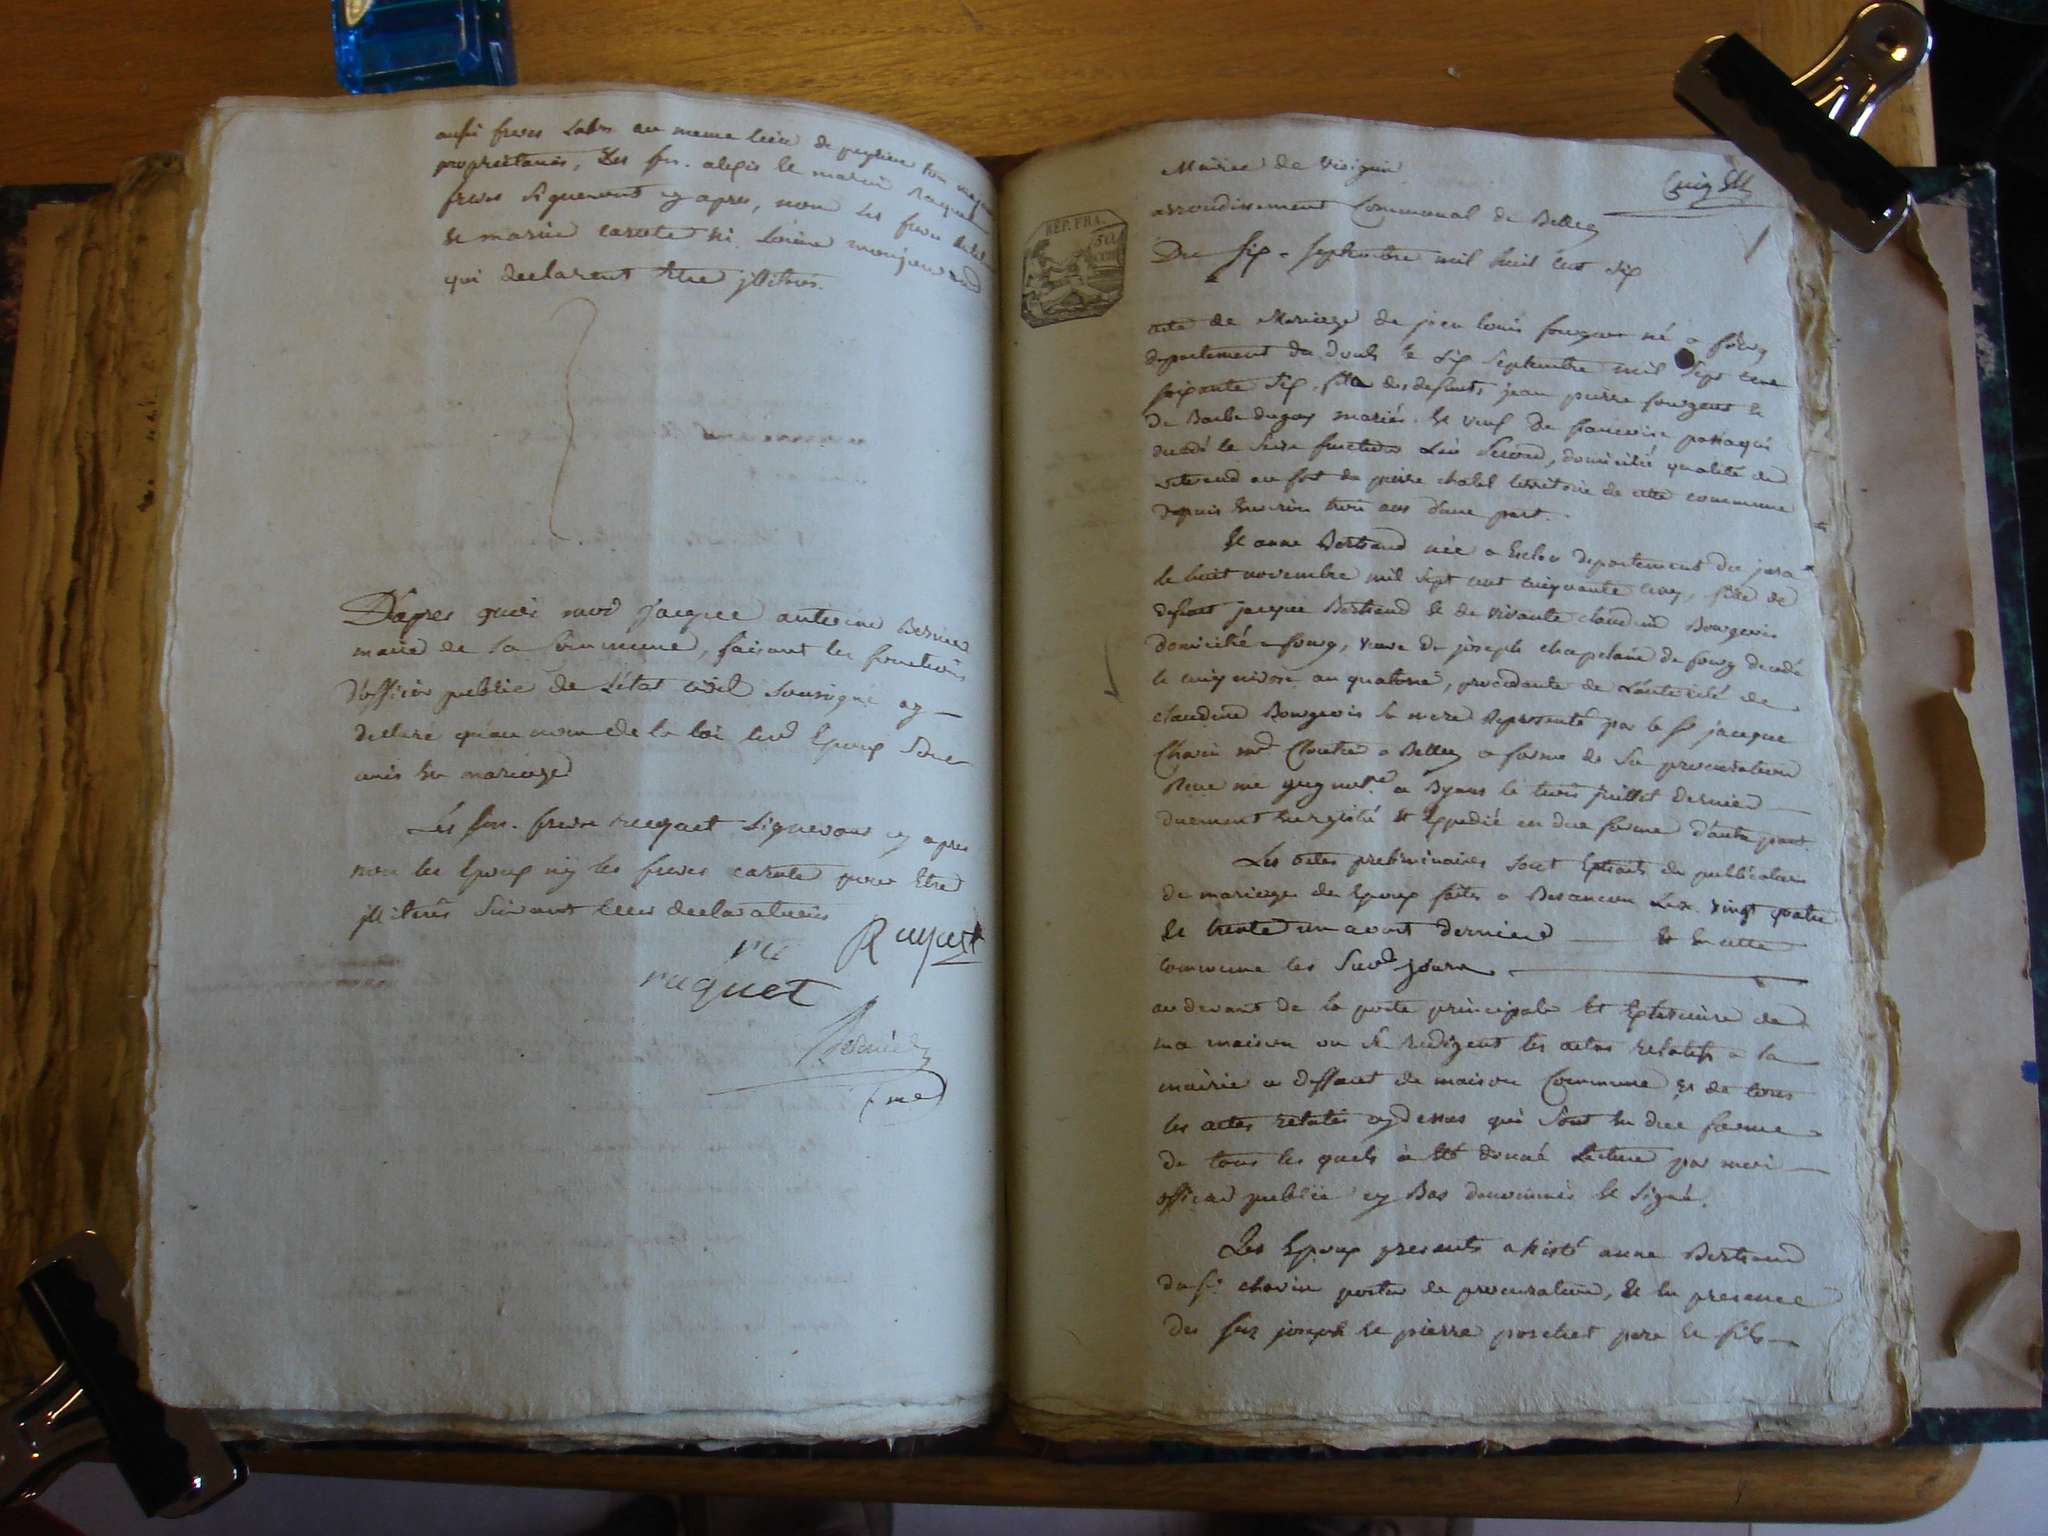 propriétaires, les srs. alexis le marin Raquet
freres signeront cy apres, non les freres
et marin carute ni
qui declarent etre illiterés.
D'apres quoi moi Jacque antoine Bernier
maire de la Commune, faisant les fonctions
d'officier public de l'état civil soussigné ay
declaré qu'au nom de la loi lesd epoux sont
unis en mariage
Les srs. freres ruquet signeront cy apres
non les epoux ny les freres carute pour etre
illiterés suivant leurs declarations
Ruquet
ruquet
Bernier
me
Mairie de Virignin
arrondissement Communal de Belley
REP. FRA.
50
cen
Du six septembre mil huit cent six
acte de Mariage de jean louis fourgeut né a fourg
departement du Doubs le six septembre mil sept cent
soixante six, fils des defunts jean pierre fourgeut et
de Barbe mariés. et veuf de francoise
decedé le seize fructidor l'an second, domicilié qualité de
veterand au fort de pierre chatel territoire de cette commune
depuis environ trois ans d'une part.
Et anne Bertrand née a departement du jura
le huit novembre mil sept cent cinquante cinq, fille de
defunt jacque Bertrand et de vivante claudine Bourgeois
domicilié a fourg, veuve de joseph chapelain de fourg decedé
le cinq nivose an quatorse, procedante de l'autorité de
claudine Bourgeois sa mere representé par le sr jacque
Chavin md Cloutier a Belley a forme de sa procuration
Recue me not.re a Byans le trois juillet dernier
duement enregistré et expedié en due forme d'autre part.
Les actes preliminaires sont extraits des publications
de mariage des epoux faites a Besancon les vingt quatre
et trente un aout dernier — et en cette
commune les susd. jours
au devant de la porte principale et exterieure de
ma maison ou se redigent les actes relatifs a la
mairie a deffaut de maison Commune et de tous
les actes relatés cy dessus qui sont en due forme
de tous les quels a eté donné lecture par moi
officier public cy Bas denommé et signé.
Les epoux presents assisté anne Bertrand
du sr. chavin porteur de procuration, et en presence
des srs joseph et pierre ponchet pere et fils